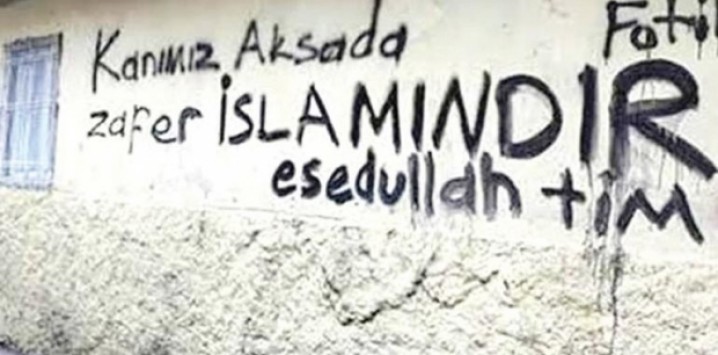 Kanımız Aksada
zafer İSLAMINDIR
esedullah tim